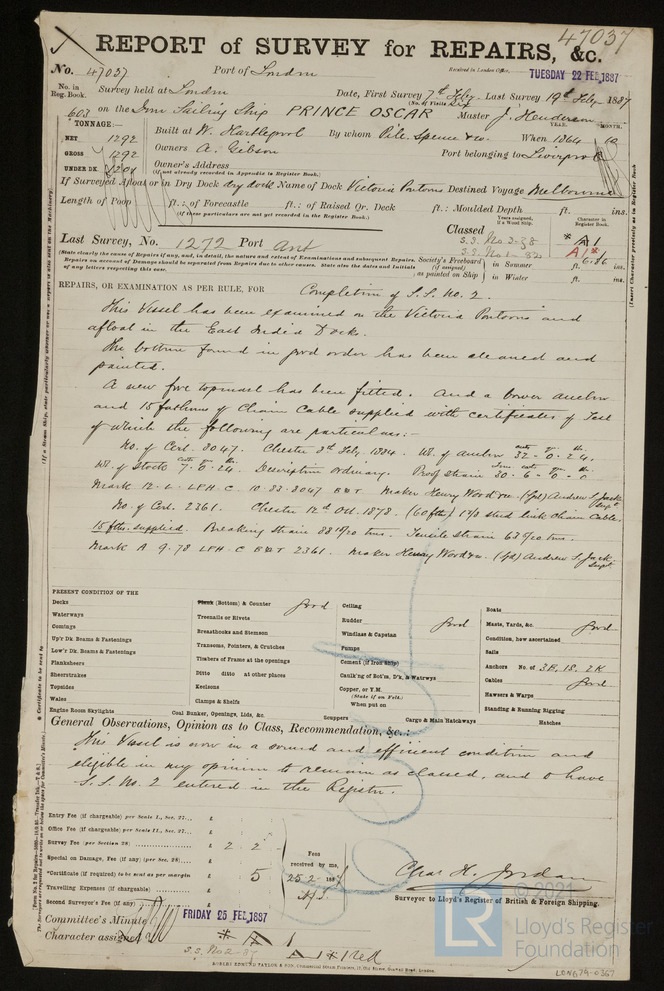 47037
REPORT of SURVEY for REPAIRS, &c.
No. 47037 Port of London Received in London Office, TUESDAY 22 FEB, 1887
No. in Reg. Book. Survey held at London Date, First Survey 7th Feby Last Survey 19th Feby 1887
(No. of Visits Six)
603 on the Iron Sailing Ship PRINCE OSCAR Master J. Henderson
TONNAGE:
NET 1292
GROSS 1292
UNDER DK.
Built at W. Hartlepool By whom Pile, Spence & Co. When 1864 YEAR. MONTH. 10
Owners A. Gibson Port belonging to Liverpool
Owner's Address
(If not already recorded in Appendix to Register Book.)
If Surveyed Afloat or in Dry Dock dry dock Name of Dock Victoria Pontoons Destined Voyage Melbourne
Length of Poop ft.: of Forecastle ft.: of Raised Qr. Deck ft.: Moulded Depth ft. ins.
(If these particulars are not yet recorded in the Register Book.)
Classed Years assigned, if a Wood Ship. Character in Register Book.
Last Survey, No. 1272 Port Ant
S.S. No 3-78 * A 1
S.S. No 1-82 A 1 *
6.86
(State clearly the cause of Repairs if any, and, in detail, the nature and extent of Examinations and subsequent Repairs. When Repairs on account of Damage should be separated from Repairs due to other causes. State also the dates and Initials of any letters respecting this case.)
Society's Freeboard (if assigned) as painted on Ship in Summer ft. ins.
in Winter ft. ins.
REPAIRS, OR EXAMINATION AS PER RULE, FOR Completion of S.S. No. 2.
This Vessel has been examined on the Victoria Pontoons and
afloat in the East India Docks.
The bottom found in good order has been cleaned and
painted.
A new fore topmast has been fitted. And a bower anchor
and 15 fathoms of Chain Cable supplied with certificates of Test
of which the following are particulars:-
No. of Cert. 8047. Chester 8th Feby. 1884. Wt. of anchor 32-0-24.
Wt. of stock 7-0-24. Description ordinary. Proof strain 30-6-0-0
Mark 12-L-LPH-C 10-83-8047 B&T Maker Henry Wood & Co (Sgd) Andrew S. Jack Supt
No. of Cert. 2361. Chester 12th Oct. 1878. (60 fths) 1 7/8 stud link Chain Cable
15 fths. supplied. Breaking strain 88 tons. Tensile strain 63 tons.
Mark A 9.78 LPH-C B&T 2361. Maker Henry Wood & Co. (Sgd) Andrew S. Jack Supt
PRESENT CONDITION OF THE
Decks
Waterways
Comings
Up'r Dk. Beams & Fastenings
Low'r Dk. Beams & Fastenings
Planksheers
Sheerstrakes
Topsides
Wales
Engine Room Skylights
Plank (Bottom) & Counter Good
Treenails or Rivets
Breasthooks and Stemson
Transoms, Pointers, & Crutches
Timbers of Frame at the openings
Ditto ditto at other places
Keelsons
Clamps & Shelfs
Coal Bunker, Openings, Lids, &c.
Ceiling
Rudder Good
Windlass & Capstan
Pumps
Cement (if Iron Ship)
Caulk'ng of Bot'm, D'k, & Watrwys
Copper, or Y.M.
(State if on Felt.)
When put on
Scuppers
Cargo & Main Hatchways
Boats
Masts, Yards, &c. Good
Condition, how ascertained
Sails
Anchors No. of 3B, 1S, 2K
Cables Good
Hawsers & Warps
Standing & Running Rigging
Hatches
General Observations, Opinion as to Class, Recommendation, &c.:
This Vessel is now in a sound and efficient condition and
eligible in my opinion to remain as classed, and to have
S.S. No. 2 entered in the Register.
Entry Fee (if chargeable) per Scale I., Sec. 27... £
Office Fee (if chargeable) per Scale II., Sec. 27... £
Survey Fee (per Section 28) £ 2 2
Special on Damage, Fee (if any) (per Sec. 28)... £
*Certificate (if required) to be sent as per margin £ 5
Travelling Expenses (if chargeable) £
Second Surveyor's Fee (if any) £
Fees received by me, 25.2.1887
Chas. H. Jordan
Surveyor to Lloyd's Register of British & Foreign Shipping.
Committee's Minute FRIDAY 25 FEB, 1887
Character assigned * A 1
S.S. No 2-87 A 1 * Red
© 2021
LR
Lloyd's Register
Foundation
LON674-0367